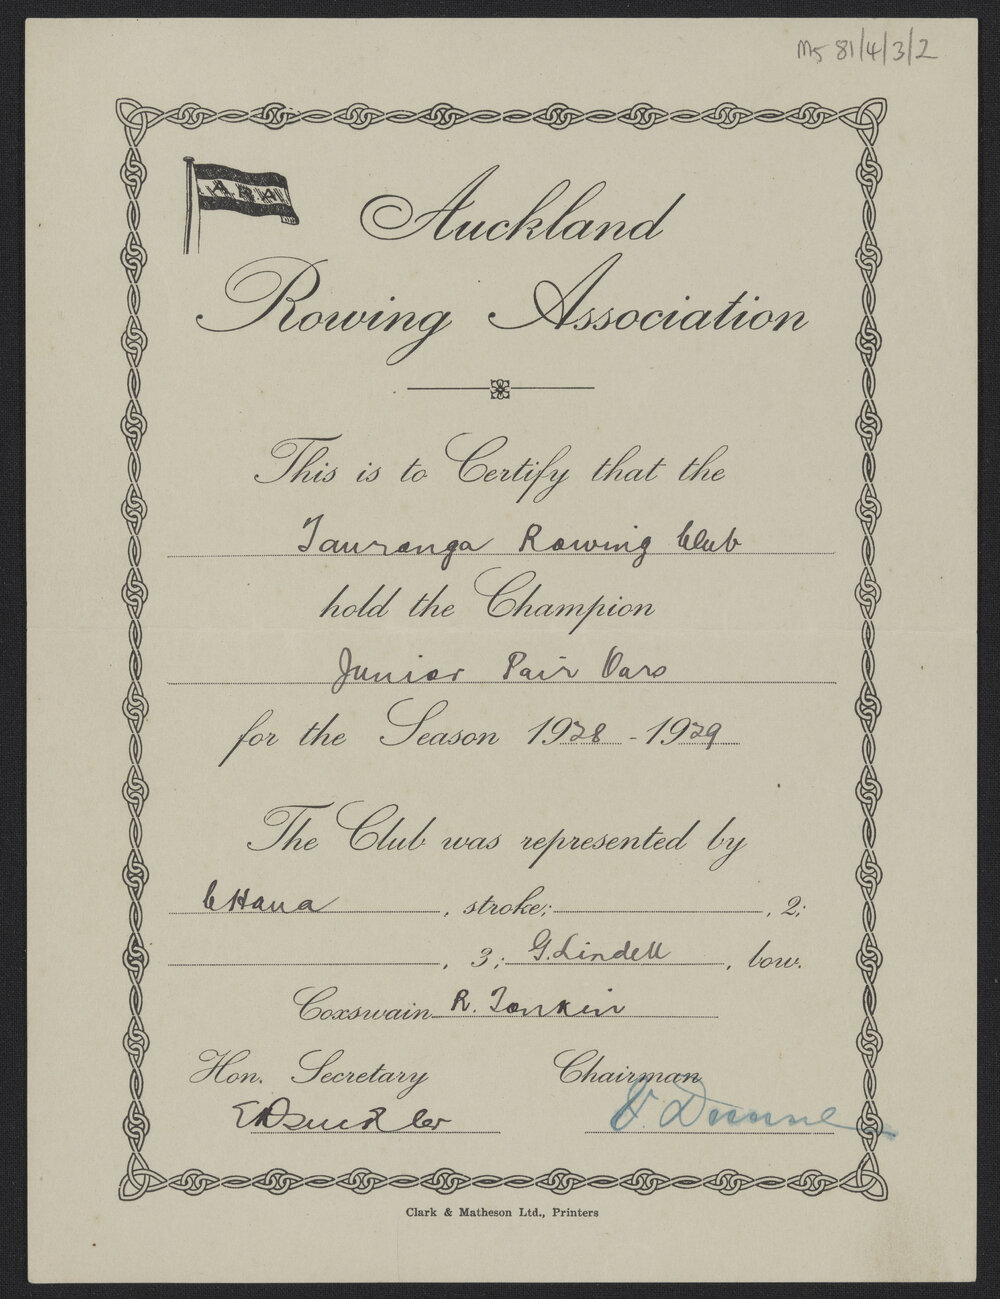 Ms 81/4/3/2
ARA
Auckland
Rowing Association
This is to Certify that the
Tauranga Rowing Club
hold the Champion
Junior Pair Oars
for the Season 1928 - 1929
The Club was represented by
C Hana, stroke; , 2;
, 3; G. Lindell, bow.
Coxswain R. Tonkin
Hon. Secretary Chairman
Clark & Matheson Ltd., Printers